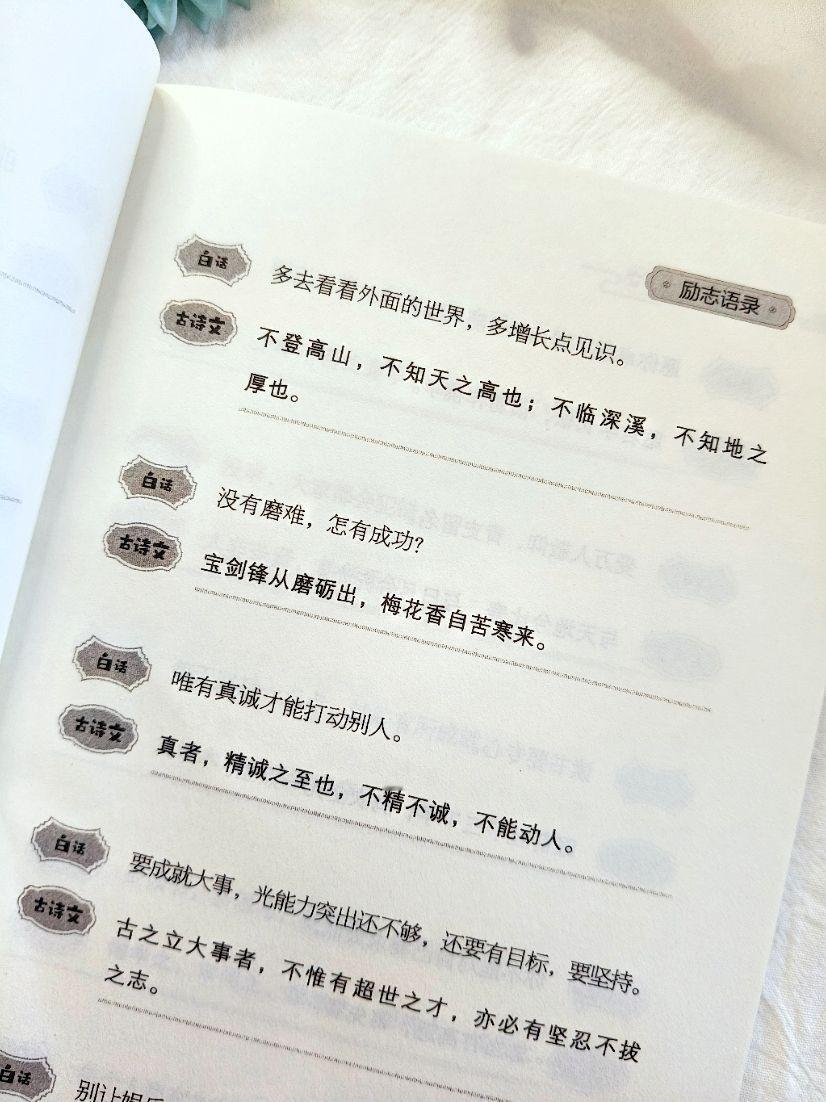 励志语录
白话
多去看看外面的世界，多增长点见识。
古诗文
不登高山，不知天之高也；不临深溪，不知地之
厚也。
白话
没有磨难，怎有成功？
古诗文
宝剑锋从磨砺出，梅花香自苦寒来。
白话
唯有真诚才能打动别人。
古诗文
真者，精诚之至也，不精不诚，不能动人。
白话
要成就大事，光能力突出还不够，还要有目标，要坚持。
古诗文
古之立大事者，不惟有超世之才，亦必有坚忍不拔
之志。
白话
别让娱乐